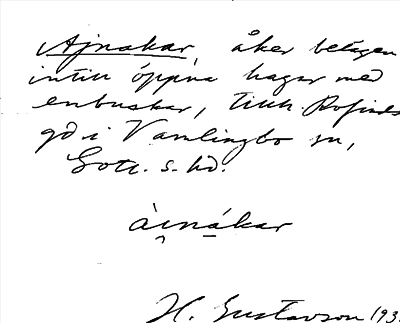 Ajnakar, åker belägen
intill öppna hagar med
enbuskar, till Rofinds
gd i Vamlingbo sn,
Gotl. s. hd.
àinákar
H. Gustavson 193